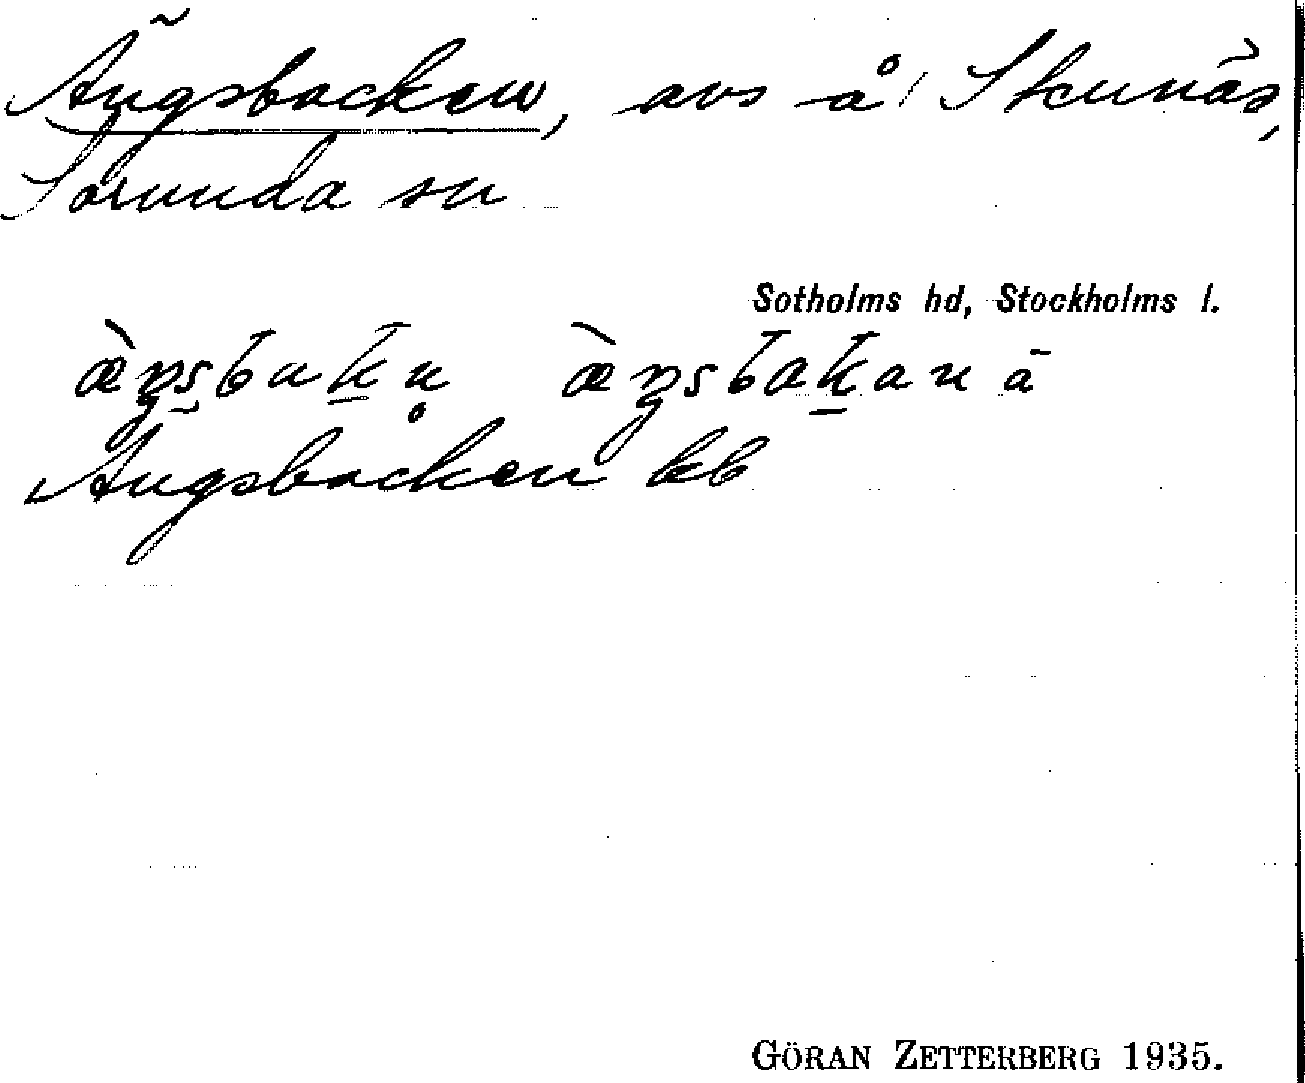 Ängsbacken, avs å Stennäs,
Sorunda sn
Sotholms hd, Stockholms l.
æ̀ŋsbakn æ̀ŋsbakan ā
Ängsbacken kb
GÖRAN ZETTERBERG 1935.